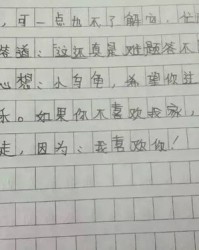 ，可一点也不了解，
答道：这还真是难题答不
心想：小乌龟，希望你注
乐。如果你不喜欢我家，
走，因为：我喜欢你！